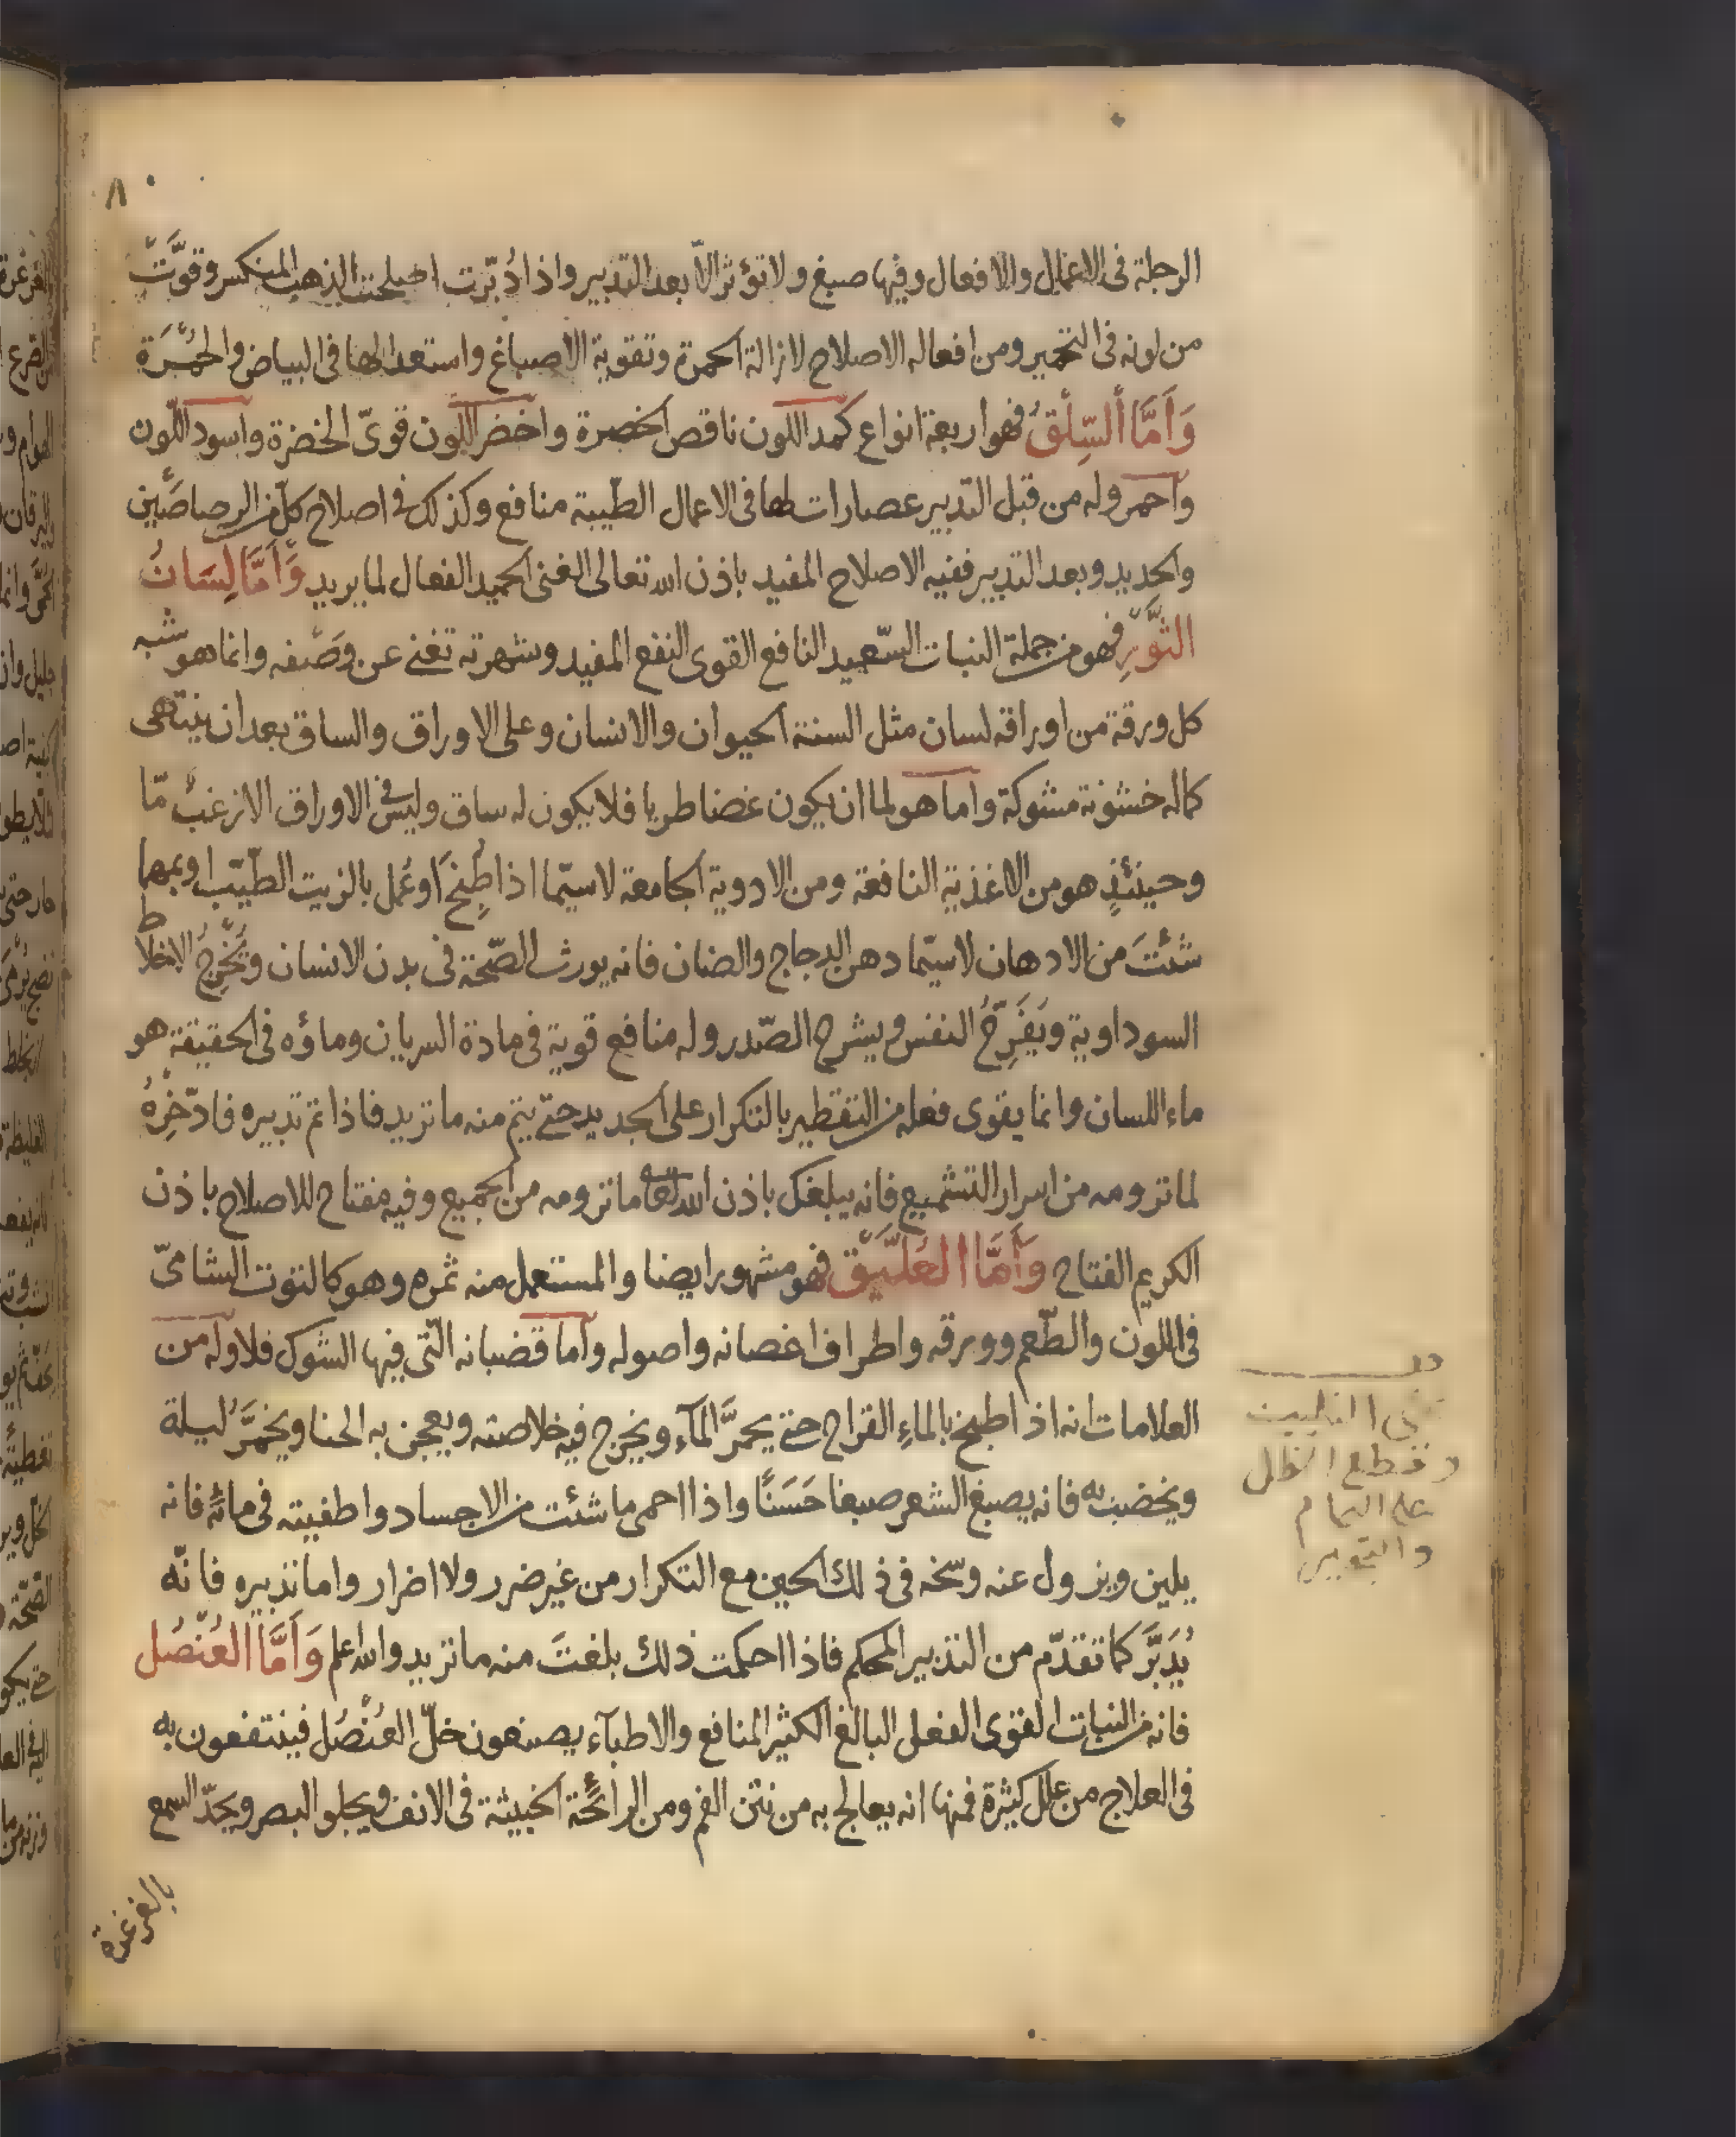 ٨
الرجلة فى الاعمال والافعال وفيها صبغ ولا تؤثر الّا بعد التدبير واذا دُبّرت اصلحت الذهب المنكسر وقوَّت
من لونه فى التحمير ومن افعاله الاصلاح لازالة الحمرة وتقوية الاصباغ واستعدالها فى البياض والحُمْرَة
وَاَمَّا السِّلْقُ فهو اربعة انواع كمد اللون ناقص الخضرة واخضر اللون قوىّ الخضرة واسود اللّون
واحمر وله من قبل التدبير عصارات لها فى الاعمال الطّيبة منافع وكذلك فى اصلاح كلّ من الرصاصَيْن
والحديد وبعد التدبير ففيه الاصلاح المفيد باذن الله تعالى الغنى الحميد الفعال لما يريد وَاَمَّا لِسَانُ
الثَّوْرِ فهو من جملة النبات السّعيد النافع القوى النفع المفيد وشهرته تغنى عن وَصْفه وانما هو شبه
كل ورقة من اوراقه لسان مثل السنة الحيوان والانسان وعلى الاوراق والساق بعد ان ينتهى
كماله خشونة مشوكة واما هو لما ان يكون غضا طريا فلا يكون له ساق وليس فى الاوراق الا زغبٌ مّا
وحينئذٍ هو من الاغذية النافعة ومن الادوية الجامعة لاسيّما اذا طُبِخَ اَوعُمل بالزيت الطّيّب او بمهما
شئتَ من الادهان لاسيّما دهن الدجاج والضان فانه يورث الصّحة فى بدن الانسان ويُخْرِجُ الاخلاط
السوداوية ويُفَرِّحُ النفس ويشرح الصّدر وله منافع قوية فى مادة السريان وماؤه فى الحقيقة هو
ماء اللسان وانما يقوى فعله من التقطير بالتكرار على الجديد حتى يتم منه ما تريد فاذا تم تدبيره فادّخِرْهُ
لما ترومه من اسرار التشميع فانه يبلغك باذن الله تعالى ما ترومه من الجميع وفيه مفتاح للاصلاح باذن
الكريم الفتاح وَاَمَّا العُلَّيْق فهو مشهور ايضا والمستعمل منه ثمره وهو كالتوت الشامىّ
فى اللون والطّعم وورقه واطراف اغصانه واصوله واما قضبانه الّتى فيها الشوك فلا وله من
العلامات انه اذا طبخ بالماءِ القراح حتى يحمرَّ المآء ويخرج فيه خلاصته ويعجن به الحنا ويخمَّرُ ليلة
ويخضب به فانه يصبغ الشعر صبغا حَسَنًا واذا احمى ما شئت من الاجساد واطفيته فى مائه فانه
يلين ويزول عنه وسخه فى ذلك الحين مع التكرار من غير ضرر ولا اضرار واما تدبيره فانّه
يُدَبَّرَ كما تقدّم من التدبير المحكم فاذا احكمت ذلك بلغتَ منه ما تريد والله اعلم وَاَمَّا العُنْصُل
فانه من النبات القوى الفعلى البالغ الكثير المنافع والاطبآء يصنعون خلّ العُنْصُل فينتفعون به
فى العلاج من علل كثيرة فمنها انه يعالج به من نتن الفم ومن الرائحة الخبيثة فى الانف ويجلو البصر ويحدّ السمع
بالغرغرة
وقطع
على التمام